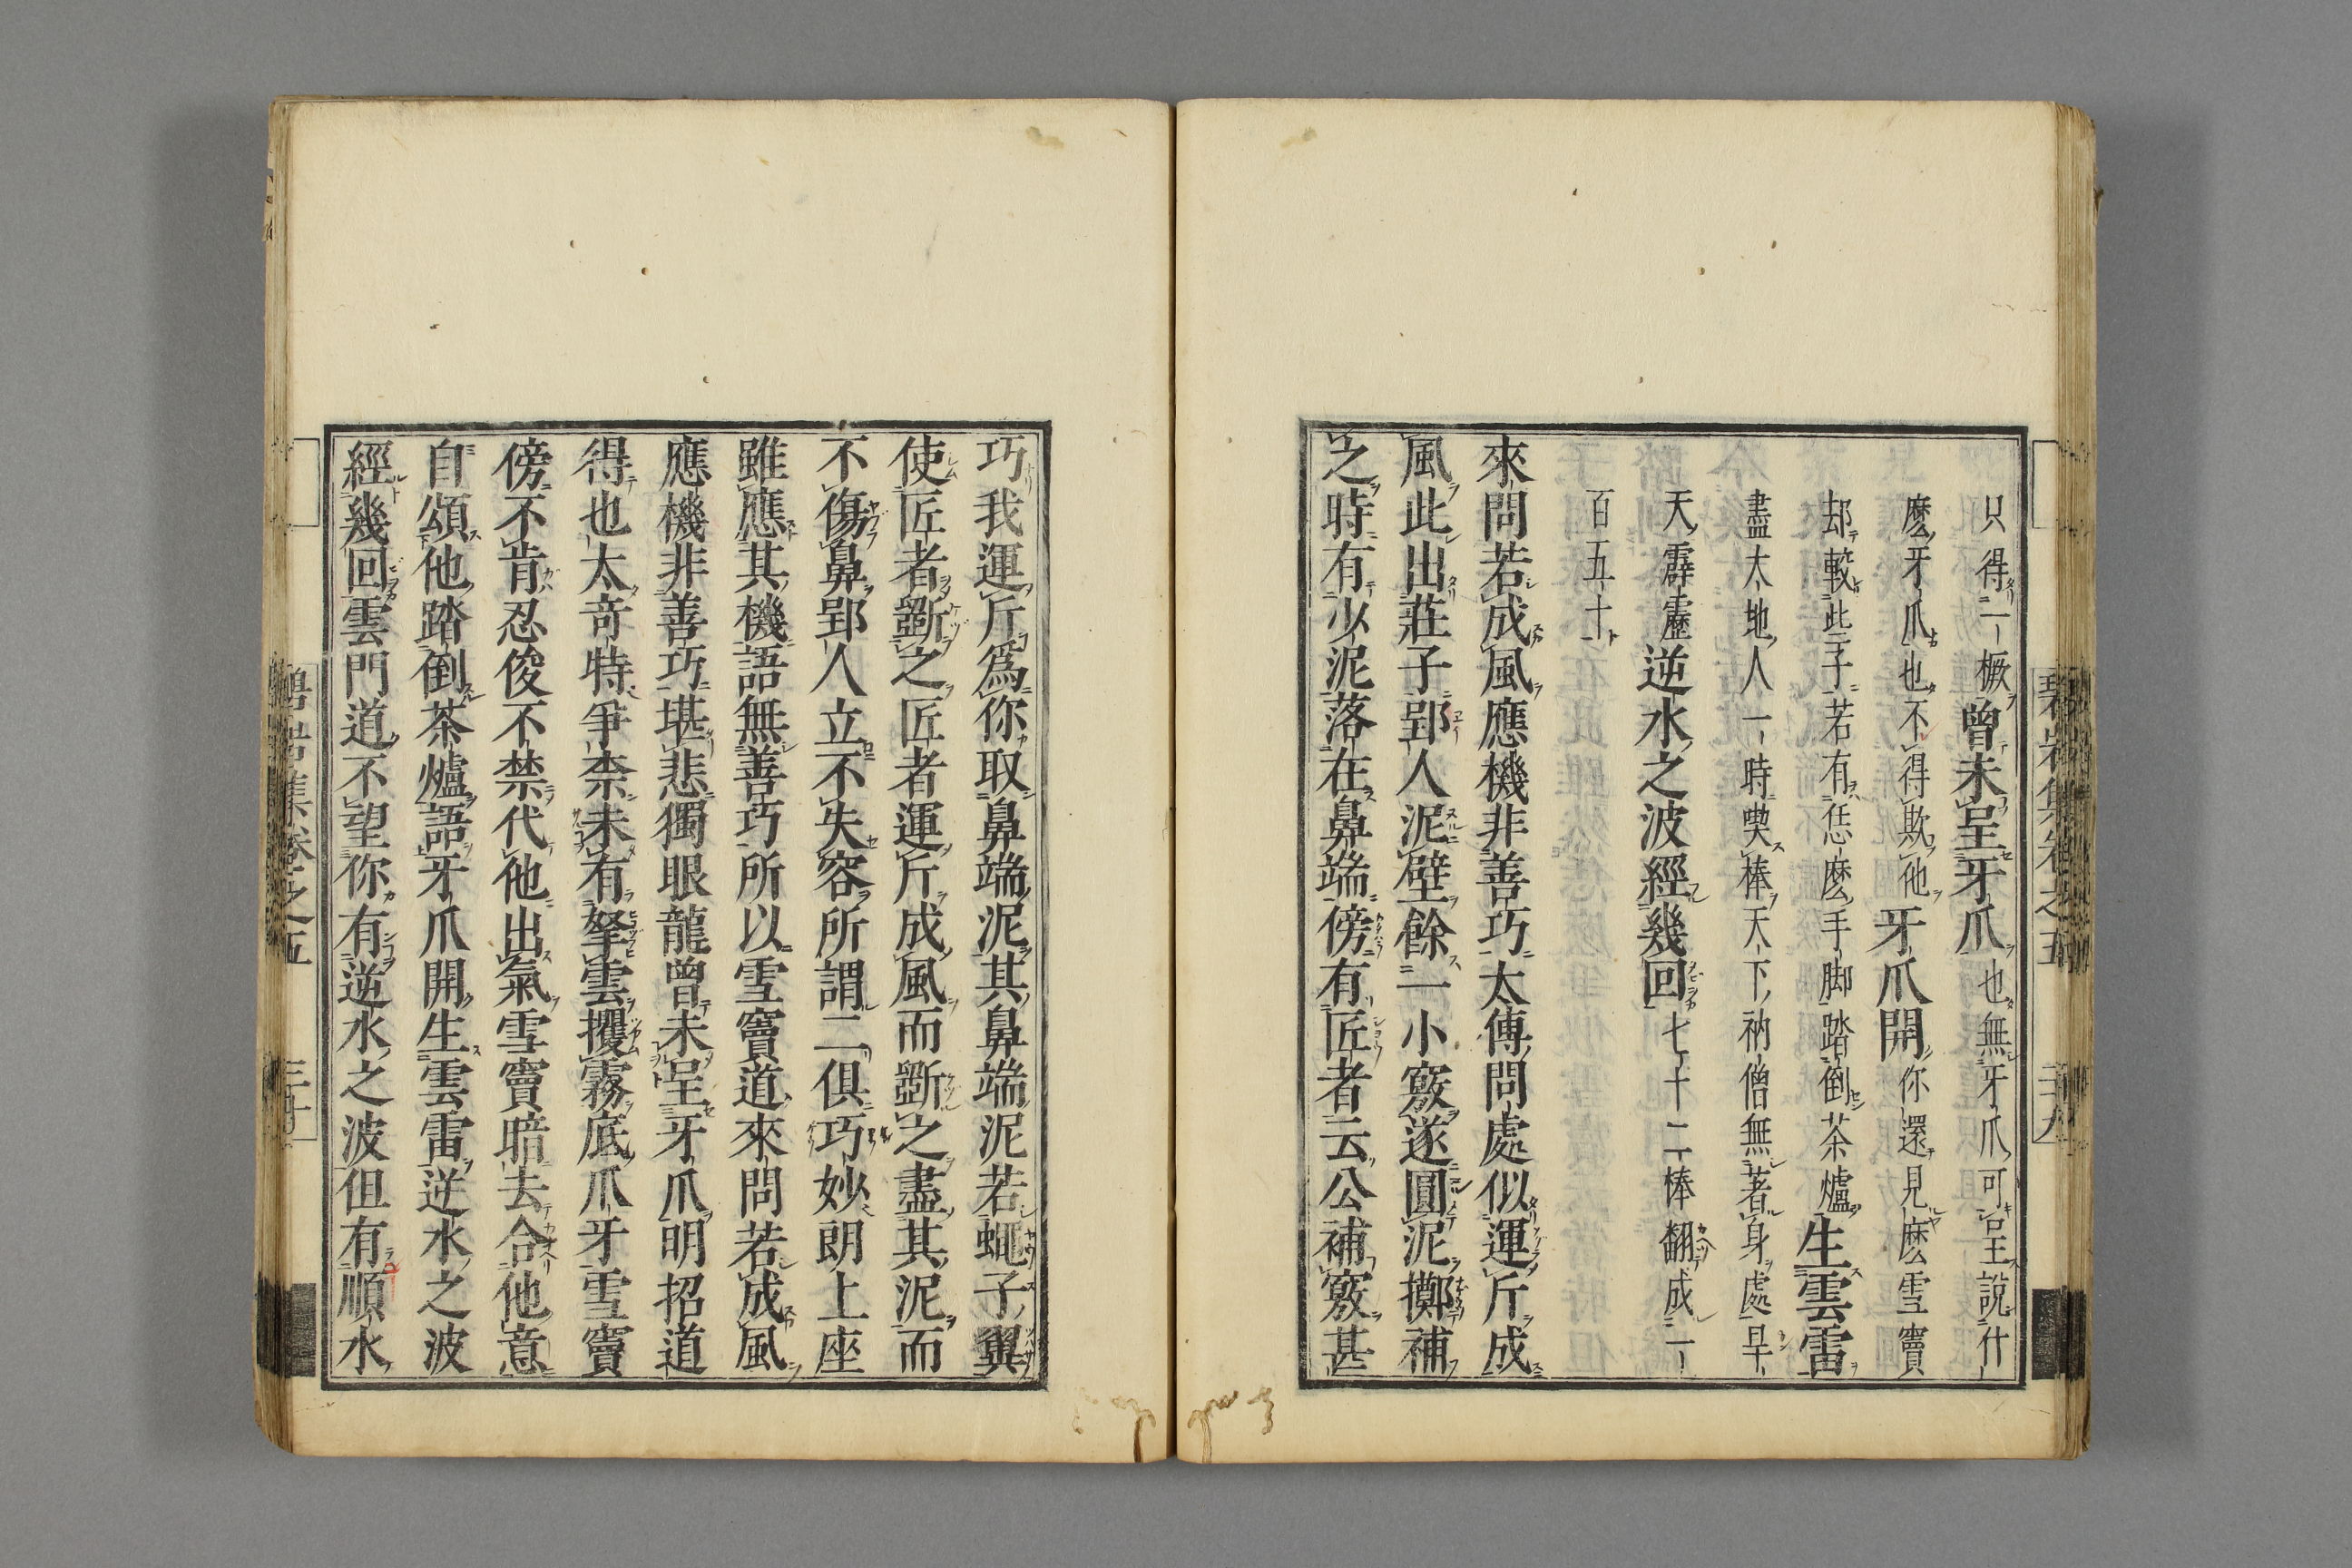 只得一橛曾未呈牙爪也無牙爪可呈說什
麼牙爪也不得欺他牙爪開你還見麼雪竇
却較些子若有恁麼手脚踏倒茶爐生雲雷
盡大地人一時喫棒天下衲僧無著身處旱
天霹靂逆水之波經幾回七十二棒翻成一
百五十
來問若成風應機非善巧太傅問處似運斤成
風此出莊子郢人泥壁餘一小竅遂圓泥擲補
之時有少泥落在鼻端傍有匠者云公補竅甚
碧岩集卷之五
二十九
巧我運斤爲你取鼻端泥其鼻端泥若蠅子翼
使匠者斵之匠者運斤成風而斵之盡其泥而
不傷鼻郢人立不失容所謂二俱巧妙朗上座
雖應其機語無善巧所以雪竇道來問若成風
應機非善巧堪悲獨眼龍曾未呈牙爪明招道
得也太奇特爭柰未有拏雲攫霧底爪牙雪竇
傍不肯忍俊不禁代他出氣雪竇暗去合他意
自頌他踏倒茶爐語牙爪開生雲雷逆水之波
經幾回雲門道不望你有逆水之波但有順水
碧岩集卷之五
三十